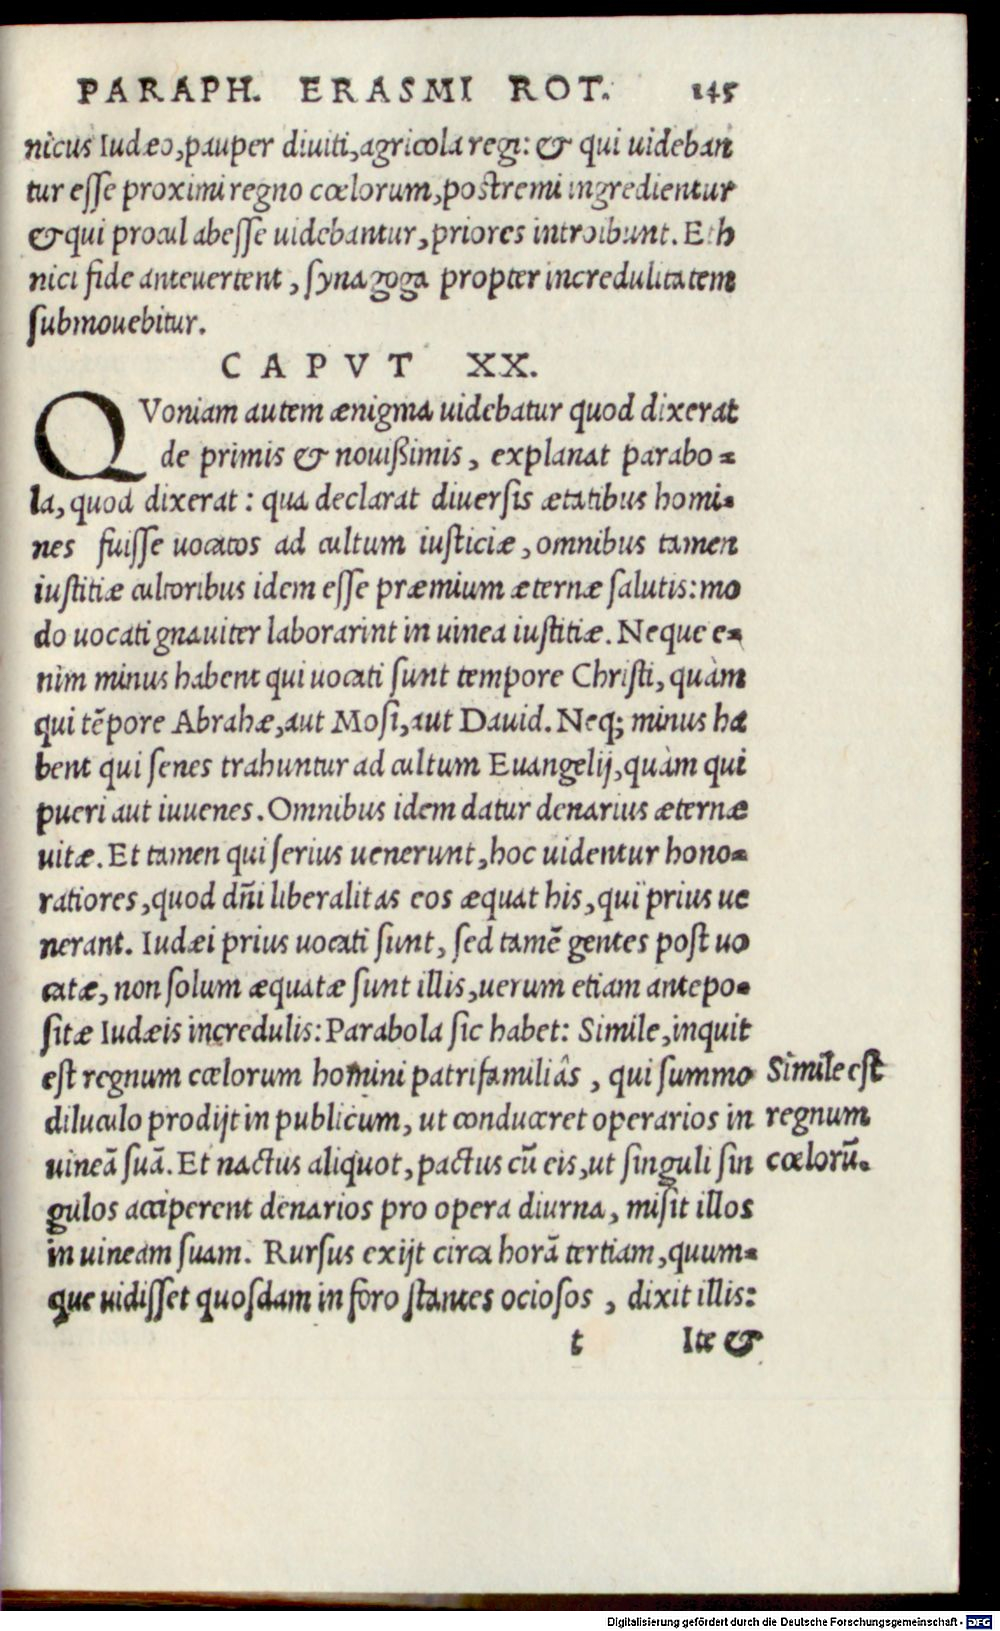 PARAPH. ERASMI ROT. 145
nicus Iudæo, pauper diuiti, agricola regi: & qui uideban
tur esse proximi regno cœlorum, postremi ingredientur
& qui procul abesse uidebantur, priores introibunt. Eth
nici fide anteuertent, synagoga propter incredulitatem
submouebitur.
CAPVT XX.
QVoniam autem ænigma uidebatur quod dixerat
de primis & nouißimis, explanat parabo=
la, quod dixerat: qua declarat diuersis ætatibus homi=
nes fuisse uocatos ad cultum iusticiæ, omnibus tamen
iustitiæ cultoribus idem esse præmium æternæ salutis: mo
do uocati gnauiter laborarint in uinea iustitiæ. Neque e=
nim minus habent qui uocati sunt tempore Christi, quàm
qui tẽpore Abrahæ, aut Mosi, aut Dauid. Neq; minus ha
bent qui senes trahuntur ad cultum Euangelij, quàm qui
pueri aut iuuenes. Omnibus idem datur denarius æternæ
uitæ. Et tamen qui serius uenerunt, hoc uidentur hono=
ratiores, quod dñi liberalitas eos æquat his, qui prius ue
nerant. Iudæi prius uocati sunt, sed tamẽ gentes post uo
catæ, non solum æquatæ sunt illis, uerum etiam antepo=
sitæ Iudæis incredulis: Parabola sic habet: Simile, inquit
est regnum cœlorum homini patrifamiliâs, qui summo
diluculo prodijt in publicum, ut conduceret operarios in
uineã suã. Et nactus aliquot, pactus cũ eis, ut singuli sin
gulos acciperent denarios pro opera diurna, misit illos
in uineam suam. Rursus exijt circa horã tertiam, quum=
que uidisset quosdam in foro stantes ociosos, dixit illis:
t Ite &
Simile est
regnum
cœlorũ.
Digitalisierung gefördert durch die Deutsche Forschungsgemeinschaft - DFG